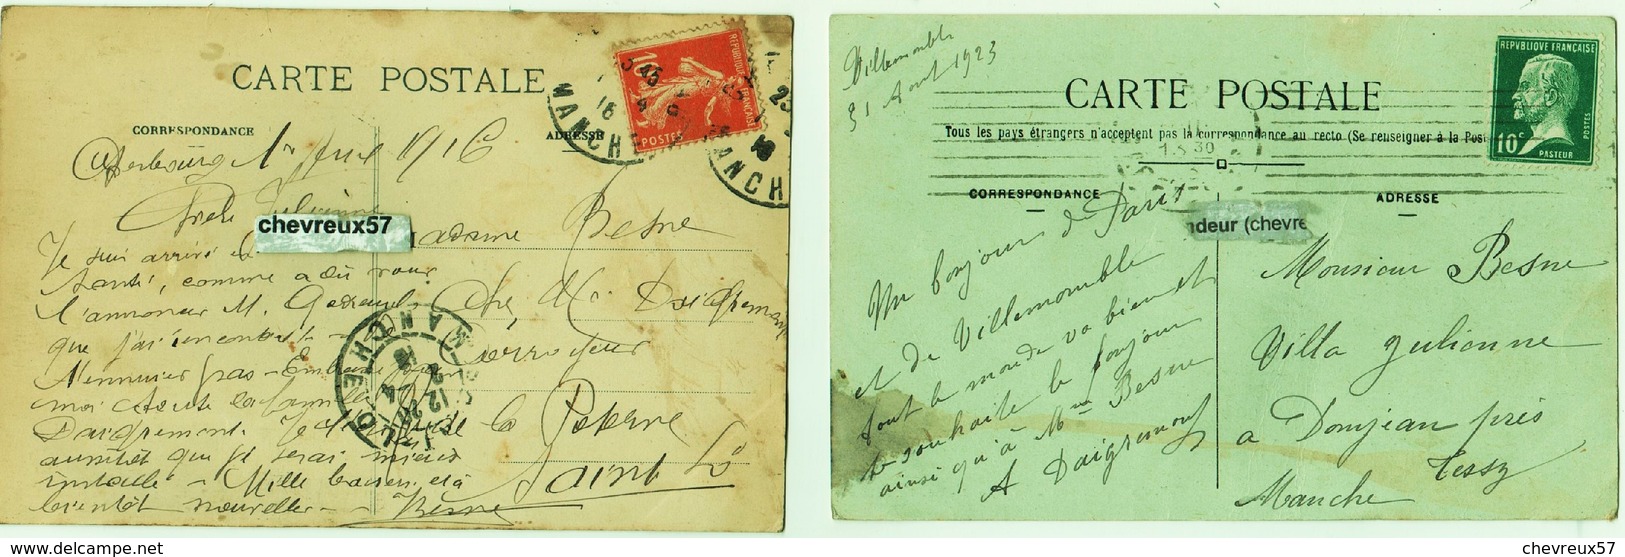 CARTE POSTALE
CORRESPONDANCE
ADRESSE
REPUBLIQUE FRANÇAISE
10
POSTES
MANCHE
MANCH
Cherbourg 1er Avril 1916
Chère Julienne
chevreux57
Je suis arrivé
santé, comme a dû vous
l'annoncer M.
que j'ai rencontré -
M'ennuier pas -
moi toute la famille
Daigremont. Je
aussitôt que je serai mieux
installé - Mille baisers et à
bientôt nouvelles -
Besne
Madame Besne
Che, Mr Daigremont
Corroyeur
la Poterne
Saint Lô
MANCHE
12
4
Villemomble
31 Aout 1923
CARTE POSTALE
Tous les pays étrangers n'acceptent pas la correspondance au recto (Se renseigner à la Post
CORRESPONDANCE
ADRESSE
REPVBLIQVE FRANÇAISE
10c
POSTES
PASTEUR
ndeur (chevre
Un bonjour de Paris
et de Villemomble
tout le monde va bien et
te souhaite le bonjour
ainsi qu'à Mme Besne
A Daigremont
Monsieur Besne
Villa Julienne
a Domjean près
Tessy
Manche
www.delcampe.net
chevreux57